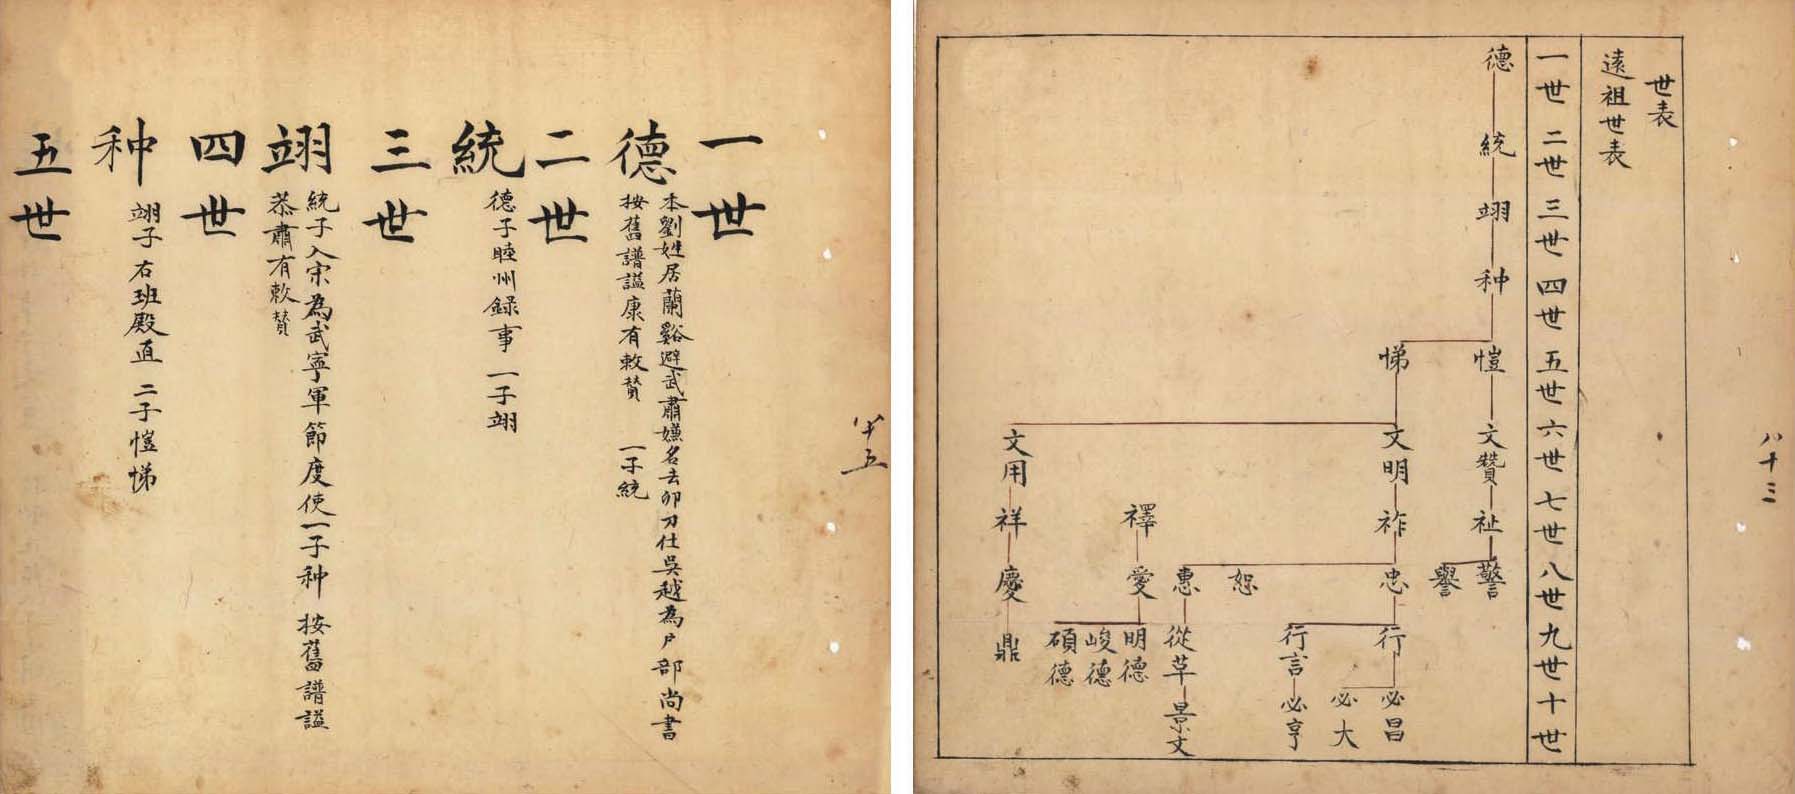 八十三
世表
遠祖世表
一世 二世 三世 四世 五世 六世 七世 八世 九世 十世
德 統 翊 种 愷 文贊 祉 警
譽
悌 文明 祚 忠 行 必昌
必大
行言 必亨
恕
惠 從草 景文
愛 明德
峻德
碩德
文用 祥 慶 鼎
八十五
一世
德
本劉姓居蘭谿避武肅嫌名去卯刀仕吳越為戶部尚書
按舊譜謚康有敕贊 一子統
二世
統
德子睦州録事一子翊
三世
翊
統子入宋為武寧軍節度使一子种 按舊譜謚
恭肅有敕贊
四世
种
翊子右班殿直 二子愷悌
五世